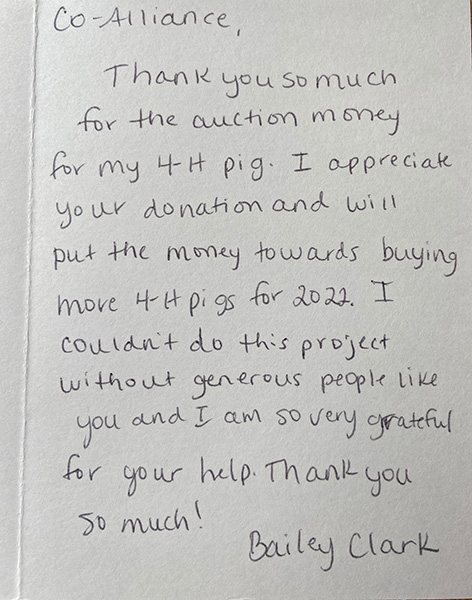 Co-Alliance,
Thank you so much
for the auction money
for my 4-H pig. I appreciate
your donation and will
put the money towards buying
more 4-H pigs for 2022. I
couldn't do this project
without generous people like
you and I am so very grateful
for your help. Thank you
so much!
Bailey Clark